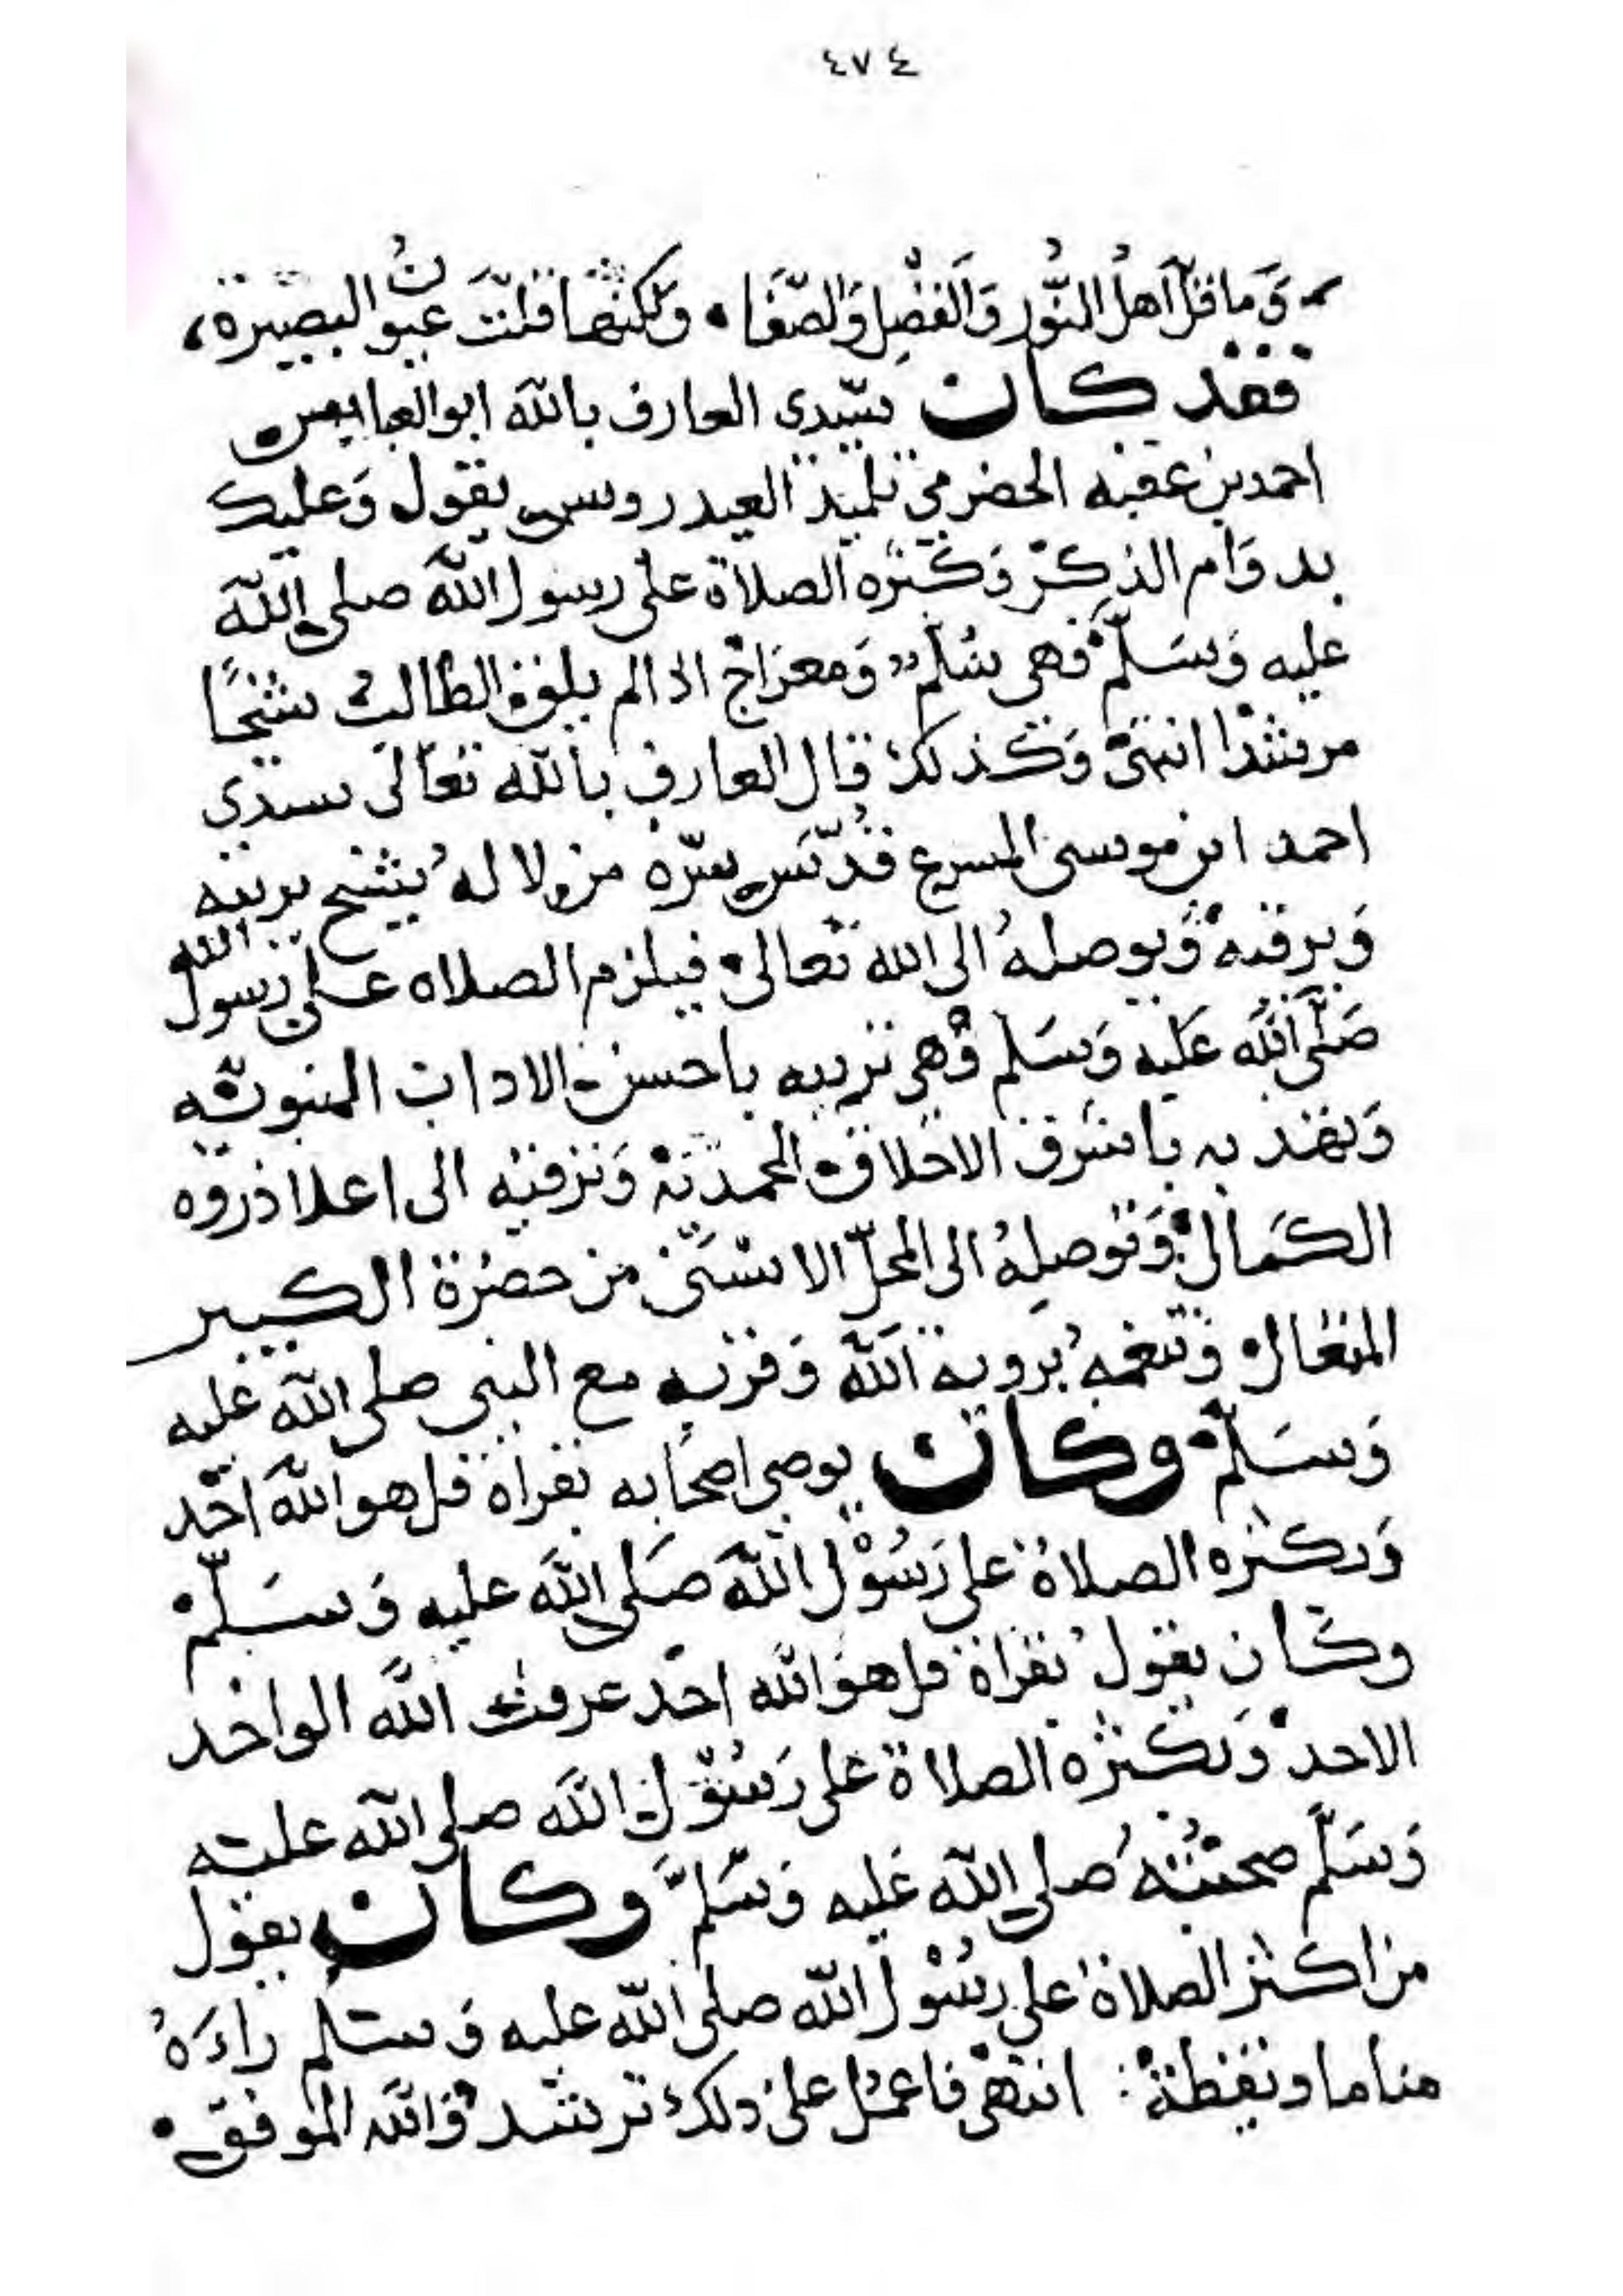 ٤٧٤
وَمَا قلَّ اَهلُ النُّورِ وَالفَضْلِ وَالصَّفَا، وَلٰكِنَّهَا قلَّتْ عيونُ البصيرة،
فقد كان سيّدى العارف بالله ابو العباس
احمد بن عقبه الحضرمي تلميذ العيدروس يقول وَعليك
بدوَام الذكر وَكثره الصلاة على رسول الله صلى الله
عليه وَسَلّم فهى سُلّم وَمعراجٌ اذا لم يلق الطالبُ شيخًا
مرشدا انتهى وَكذلك قال العارف بالله تعالى سيدى
احمد ابن موسى المسرع قُدّسَ سرّه من لا له شيخ يربيه
وَيرقيه وَيوصلهُ الى الله تعالى فيلزم الصلاه على رسول الله
صَلَّى اللَّه عَليه وَسَلم وَهى تربيه باحسن الاداب النبويّه
وَتهذبه باشرف الاخلاق المحمديّة وَترقيه الى اعلا ذروه
الكَمال وَتوصلهُ الى المحلّ الاسنَى من حضرة الكبير
المتعال وَتنعمه برؤية اللَّه وَقربه مع النبى صلى الله عليه
وَسَلّم وكان يوصى اصحَابه بقراة قل هو اللهَ احَد
وَبكثره الصلاة على رَسُوْل اللهَ صَلى اللهَ عليه وَسَلّم
وكان يقول بقراة قل هوَ الله احَد عرفتُ اللَّه الواحد
الاحد وَبكثره الصلاة على رَسُوْل اللهَ صلى الله عليه
وَسَلّم صحبْتُهُ صلى الله عَليه وَسَلمَّ وكان يقول
من اكثر الصلاة على رسُوْل الله صلى الله عليه وَسلم راءَهُ
مناما ويقظة انتهَى فاعمل على ذلك ترشد وَالله الموفق